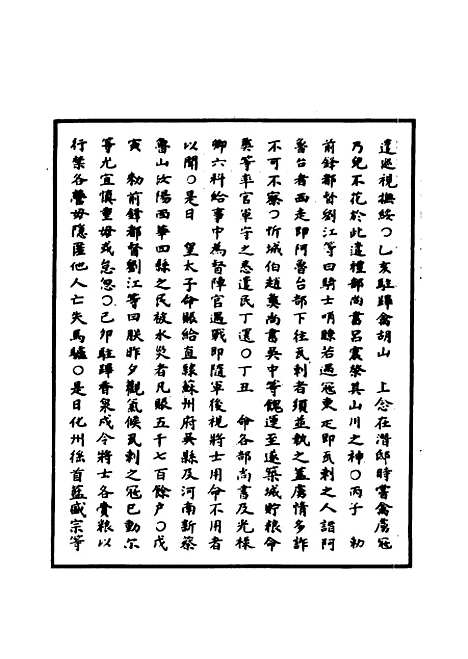 遣巡視撫綏○乙亥駐蹕禽胡山　上念在潛邸時嘗禽虜冠
乃兒不花於此遣禮部尚書呂震祭其山川之神○丙子　勑
前鋒都督劉江等曰騎士哨瞭若遇寇東走即瓦剌之人謂阿
魯台者西走即阿魯台部下往瓦剌者須並執之蓋虜情多詐
不可不察○忻城伯趙彝尚書吳中等餽運至遂築城貯粮命
彝等率官軍守之悉遣民丁還○丁丑　命各部尚書及光祿
卿六科給事中為督陣官遇戰即隨軍後視將士用命不用者
以聞○是日　皇太子命賑給直隸蘇州府吳縣及河南新蔡
魯山汝陽西華四縣之民被水災者凡賑五千七百餘户○戊
寅　勑前鋒都督劉江等曰朕昨夕觀氣候瓦剌之寇已動尔
等尤宜慎重毋或怠忽○己卯駐蹕香泉戍令將士各賫粮以
行禁各營毋隱匿他人亡失馬驢○是日化州徭首藍盛宗等